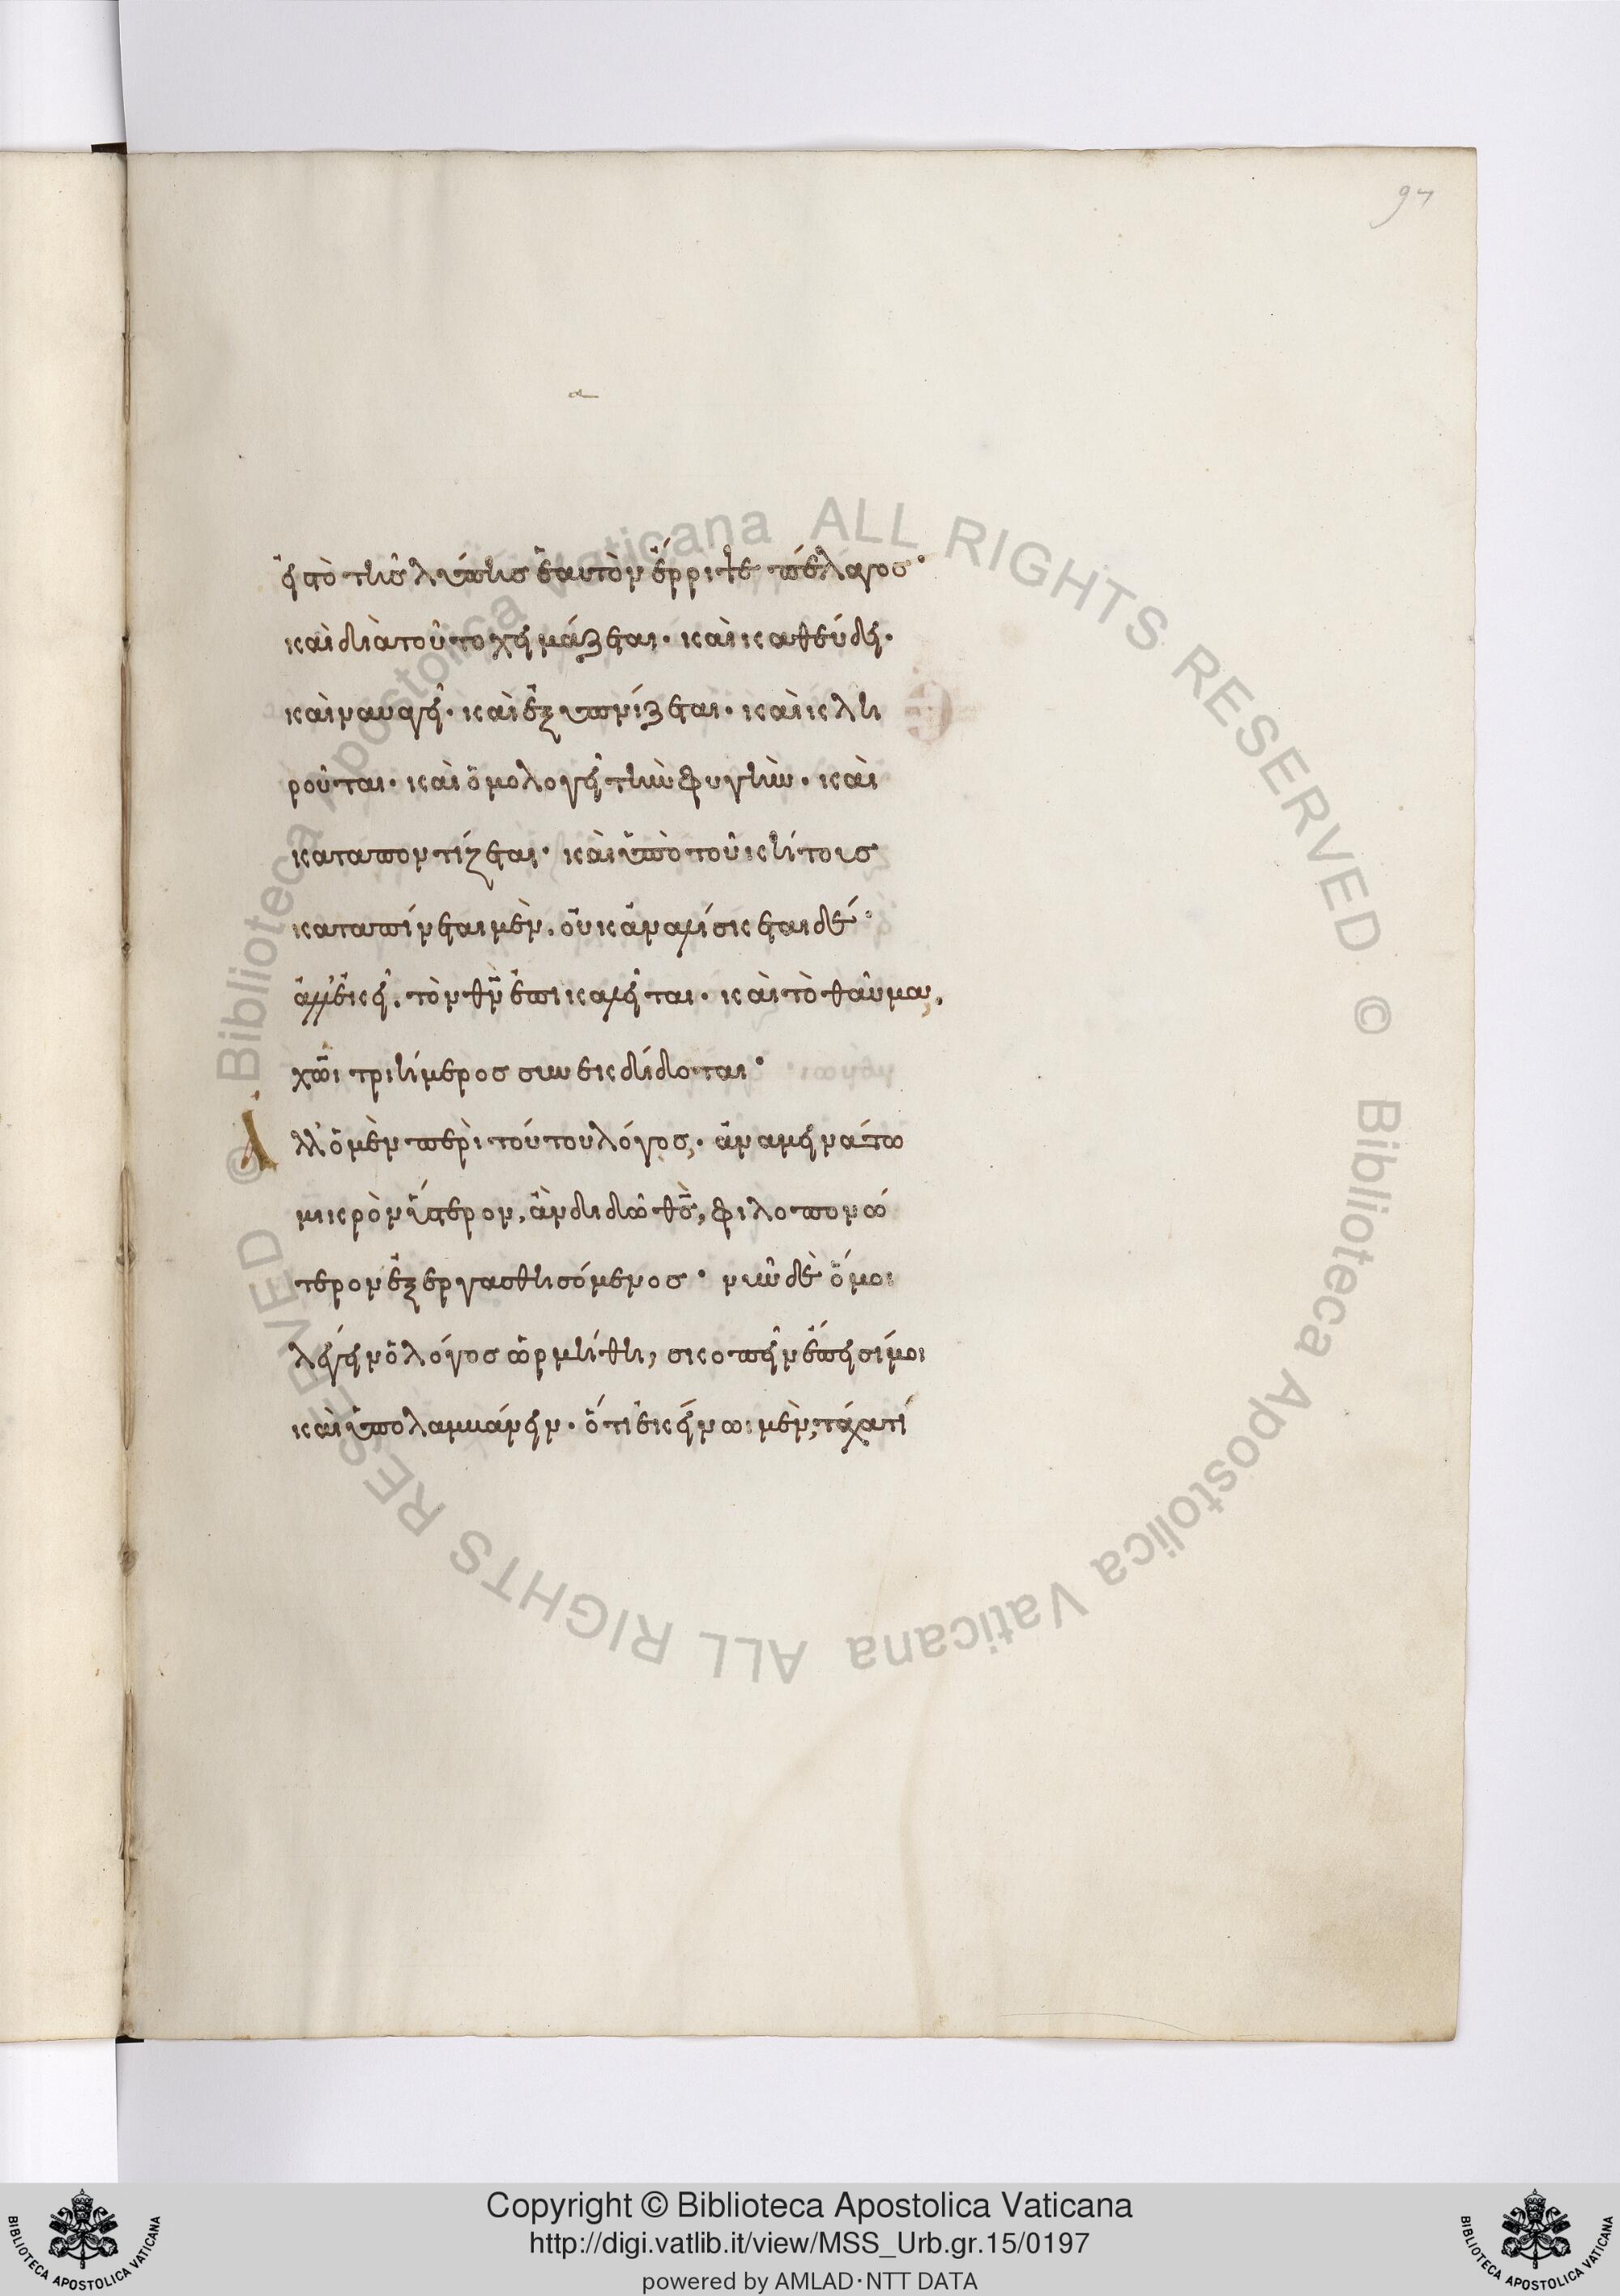 97
εἰς τὸ τῆς λύπης ἑαυτὸν ἔρριψε πέλαγος·
καὶ διὰ τοῦτο χειμάζεται· καὶ καθεύδει·
καὶ ναυαγεῖ· καὶ ἐξυπνίζεται· καὶ κλη
ροῦται· καὶ ὁμολογεῖ τὴν φυγὴν· καὶ
καταποντίζεται· καὶ ὑπὸ τοῦ κήτους
καταπίνεται μὲν, οὐκ ἀναλίσκεται δέ·
ἀλλ' ἐκεῖ, τὸν θν ἐπικαλεῖται· καὶ τὸ θαῦμα,
χωι τριήμερος συνεκδίδοται·
Ἀ
λλ' ὁ μὲν περὶ τούτου λόγος, ἀναμεινάτω
μικρὸν ὕστερον, ἂν διδῶ θς, φιλοπονώ
τερον ἐξεργασθησόμενος· νῦν δὲ ὅμοι
λέγειν ὁ λόγος ὡρμήθη, σκοπεῖν ἔπεισί μοι
καὶ ὑπολαμβάνειν· ὅτι ἐκείνωι μὲν, τάχα τί
© Biblioteca Apostolica Vaticana ALL RIGHTS RESERVED © Biblioteca Apostolica Vaticana ALL RIGHTS RESERVED
Copyright © Biblioteca Apostolica Vaticana
http://digi.vatlib.it/view/MSS_Urb.gr.15/0197
powered by AMLAD·NTT DATA
BIBLIOTECA APOSTOLICA VATICANA
BIBLIOTECA APOSTOLICA VATICANA